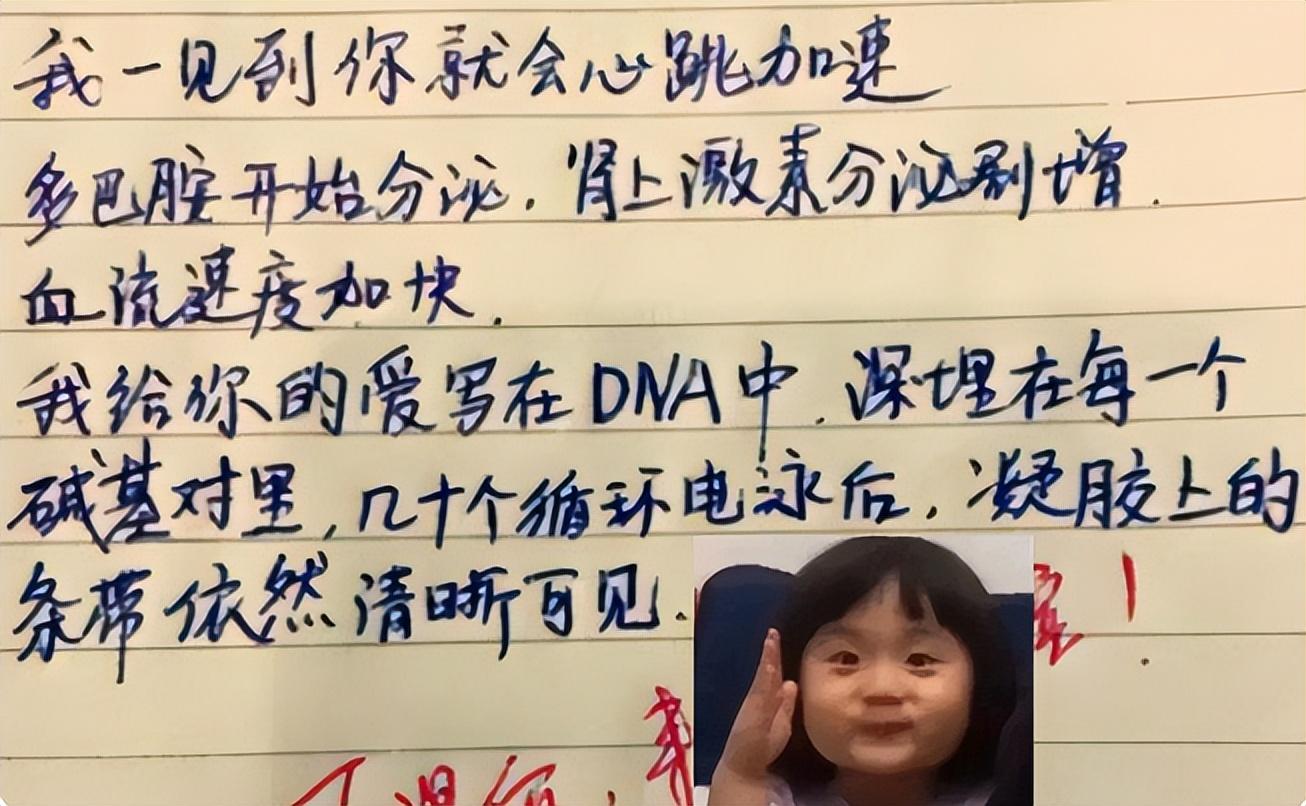 我一见到你就会心跳加速
多巴胺开始分泌，肾上激素分泌剧增.
血流速度加快.
我给你的爱写在DNA中.深埋在每一个
碱基对里,几十个循环电泳后,凝胶上的
条带依然清晰可见.